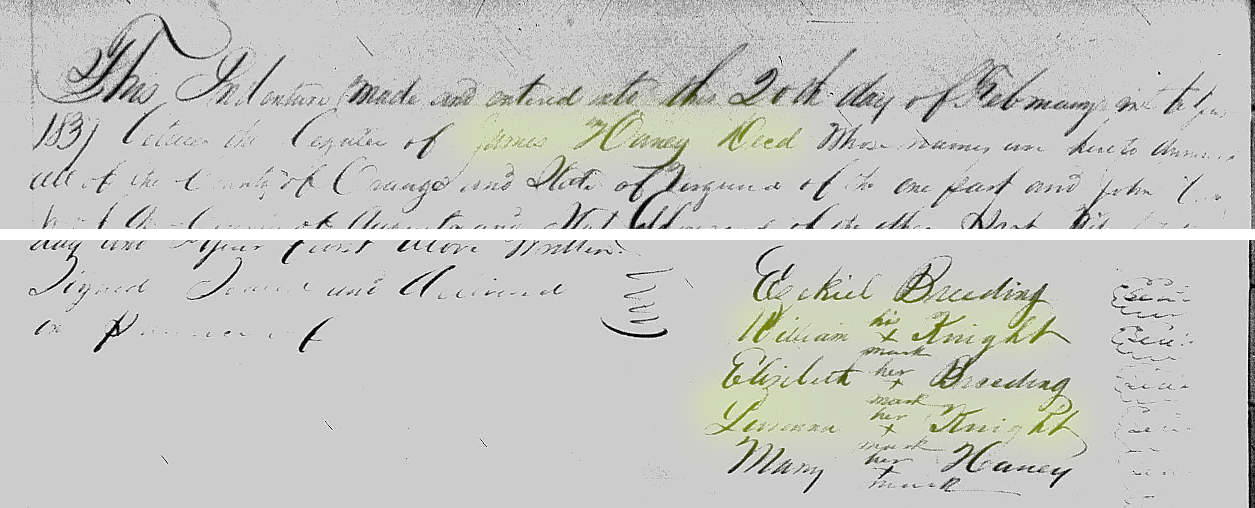 This Indenture made and entered into this 20th day of February in the year
1837 between the Legatees of James Haney Decd Whose names are here to
all of the County of Orange and State of Virginia of the one part and John
of the other Part
day and year first above Written.
Signed Sealed and Delivered
in presence of
Ezekiel Breeding Seal
William his x mark Knight Seal
Elizabeth her x mark Breeding Seal
her x mark Knight Seal
Mary her x mark Haney